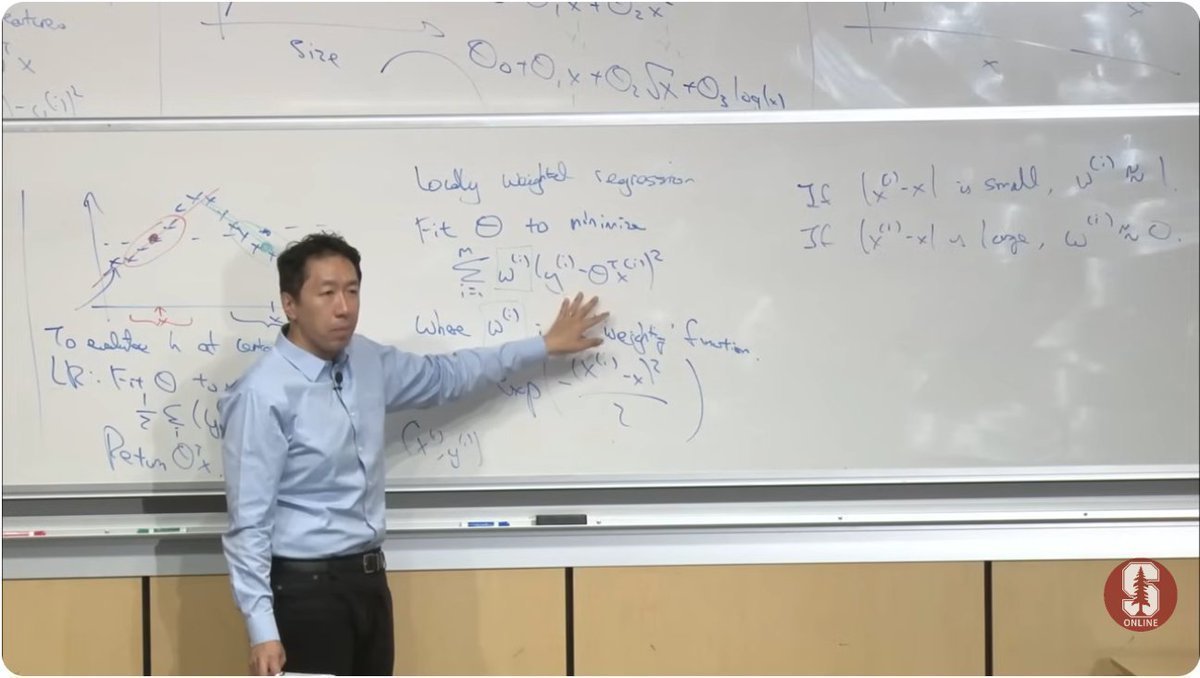 Size
Θ₀+Θ₁x+Θ₂√x+Θ₃log(x)
x
Locally weighted regression
Fit Θ to minimize
Σ w⁽ⁱ⁾(y⁽ⁱ⁾-Θᵀx⁽ⁱ⁾)²
Where w⁽ⁱ⁾ weighting function.
exp(-(x⁽ⁱ⁾-x)²
2
(x⁽ⁱ⁾, y⁽ⁱ⁾)
If |x⁽ⁱ⁾-x| is small, w⁽ⁱ⁾≈1.
If |x⁽ⁱ⁾-x| is large, w⁽ⁱ⁾≈0.
To evaluate h at
LR: Fit Θ to
½ Σ (y
Return Θᵀx.
S
ONLINE